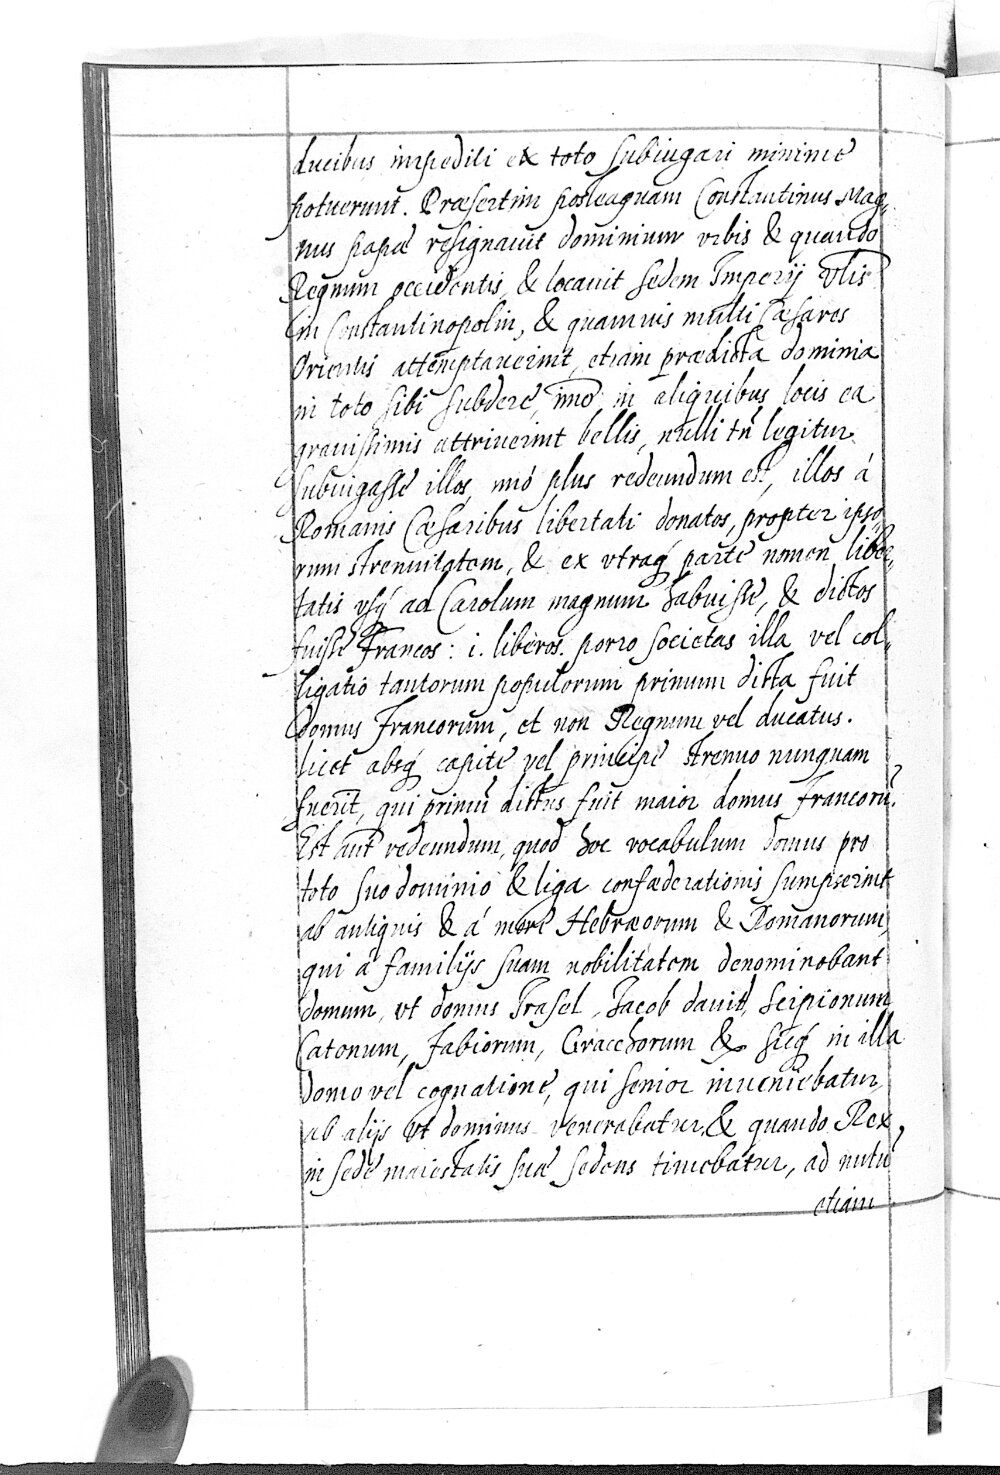 ducibus impediti ex toto subiugari minime
potuerunt. Præsertim posteaquam Constantinus Mag,,
nus papæ resignauit dominium vrbis & quando
Regnum occidentis, & locauit sedem Imperij
in Constantinopolim, & quamuis multi Cæsares
Orientis attemptauerint, etiam prædicta dominia
in toto sibi subdere, imo in aliquibus locis ea
grauissimis attriuerint bellis, nulli tn̄ legitur
subiugasse illos, imó plus redeundum est, illos á
Romanis Cæsaribus libertati donatos, propter ipso,,
rum strenuitatem, & ex vtraq́ parte nomen liber,,
tatis vsq́ ad Carolum magnum habuisse, & dictos
fuisse Francos: i. liberos. porro societas illa vel col,,
ligatio tantorum populorum primum dicta fuit
domus Francorum, et non Regnum vel ducatus.
licet absq́ capite vel principe strenuo nunquam
fuerit, qui primū dictus fuit maior domus Francorū.
Est aut̄ redeundum, quod hoc vocabulum domus pro
toto suo dominio & liga confæderationis sumpserint
ab antiquis & á more Hebræorum & Romanorum,
qui á familijs suam nobilitatem denominabant
domum, vt domus Israel, Jacob dauid, Scipionum
Catonum, Fabiorum, Gracchorum & sicq́ in illa
Domo vel cognatione, qui senior inueniebatur,
ab alijs vt dominus venerabatur, & quando Rex
in sede maiestatis suæ sedens timebatur, ad nutū
etiam